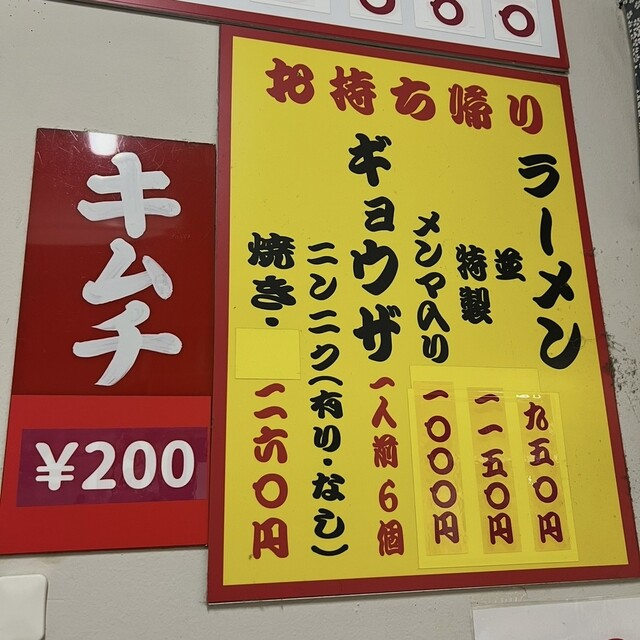 お持ち帰り
ラーメン
並 九五〇円
特製 一一五〇円
メンマ入り 一〇〇〇円
ギョウザ 一人前6個
ニンニク(有り・なし)
焼き・ 二六〇円
キムチ
¥200